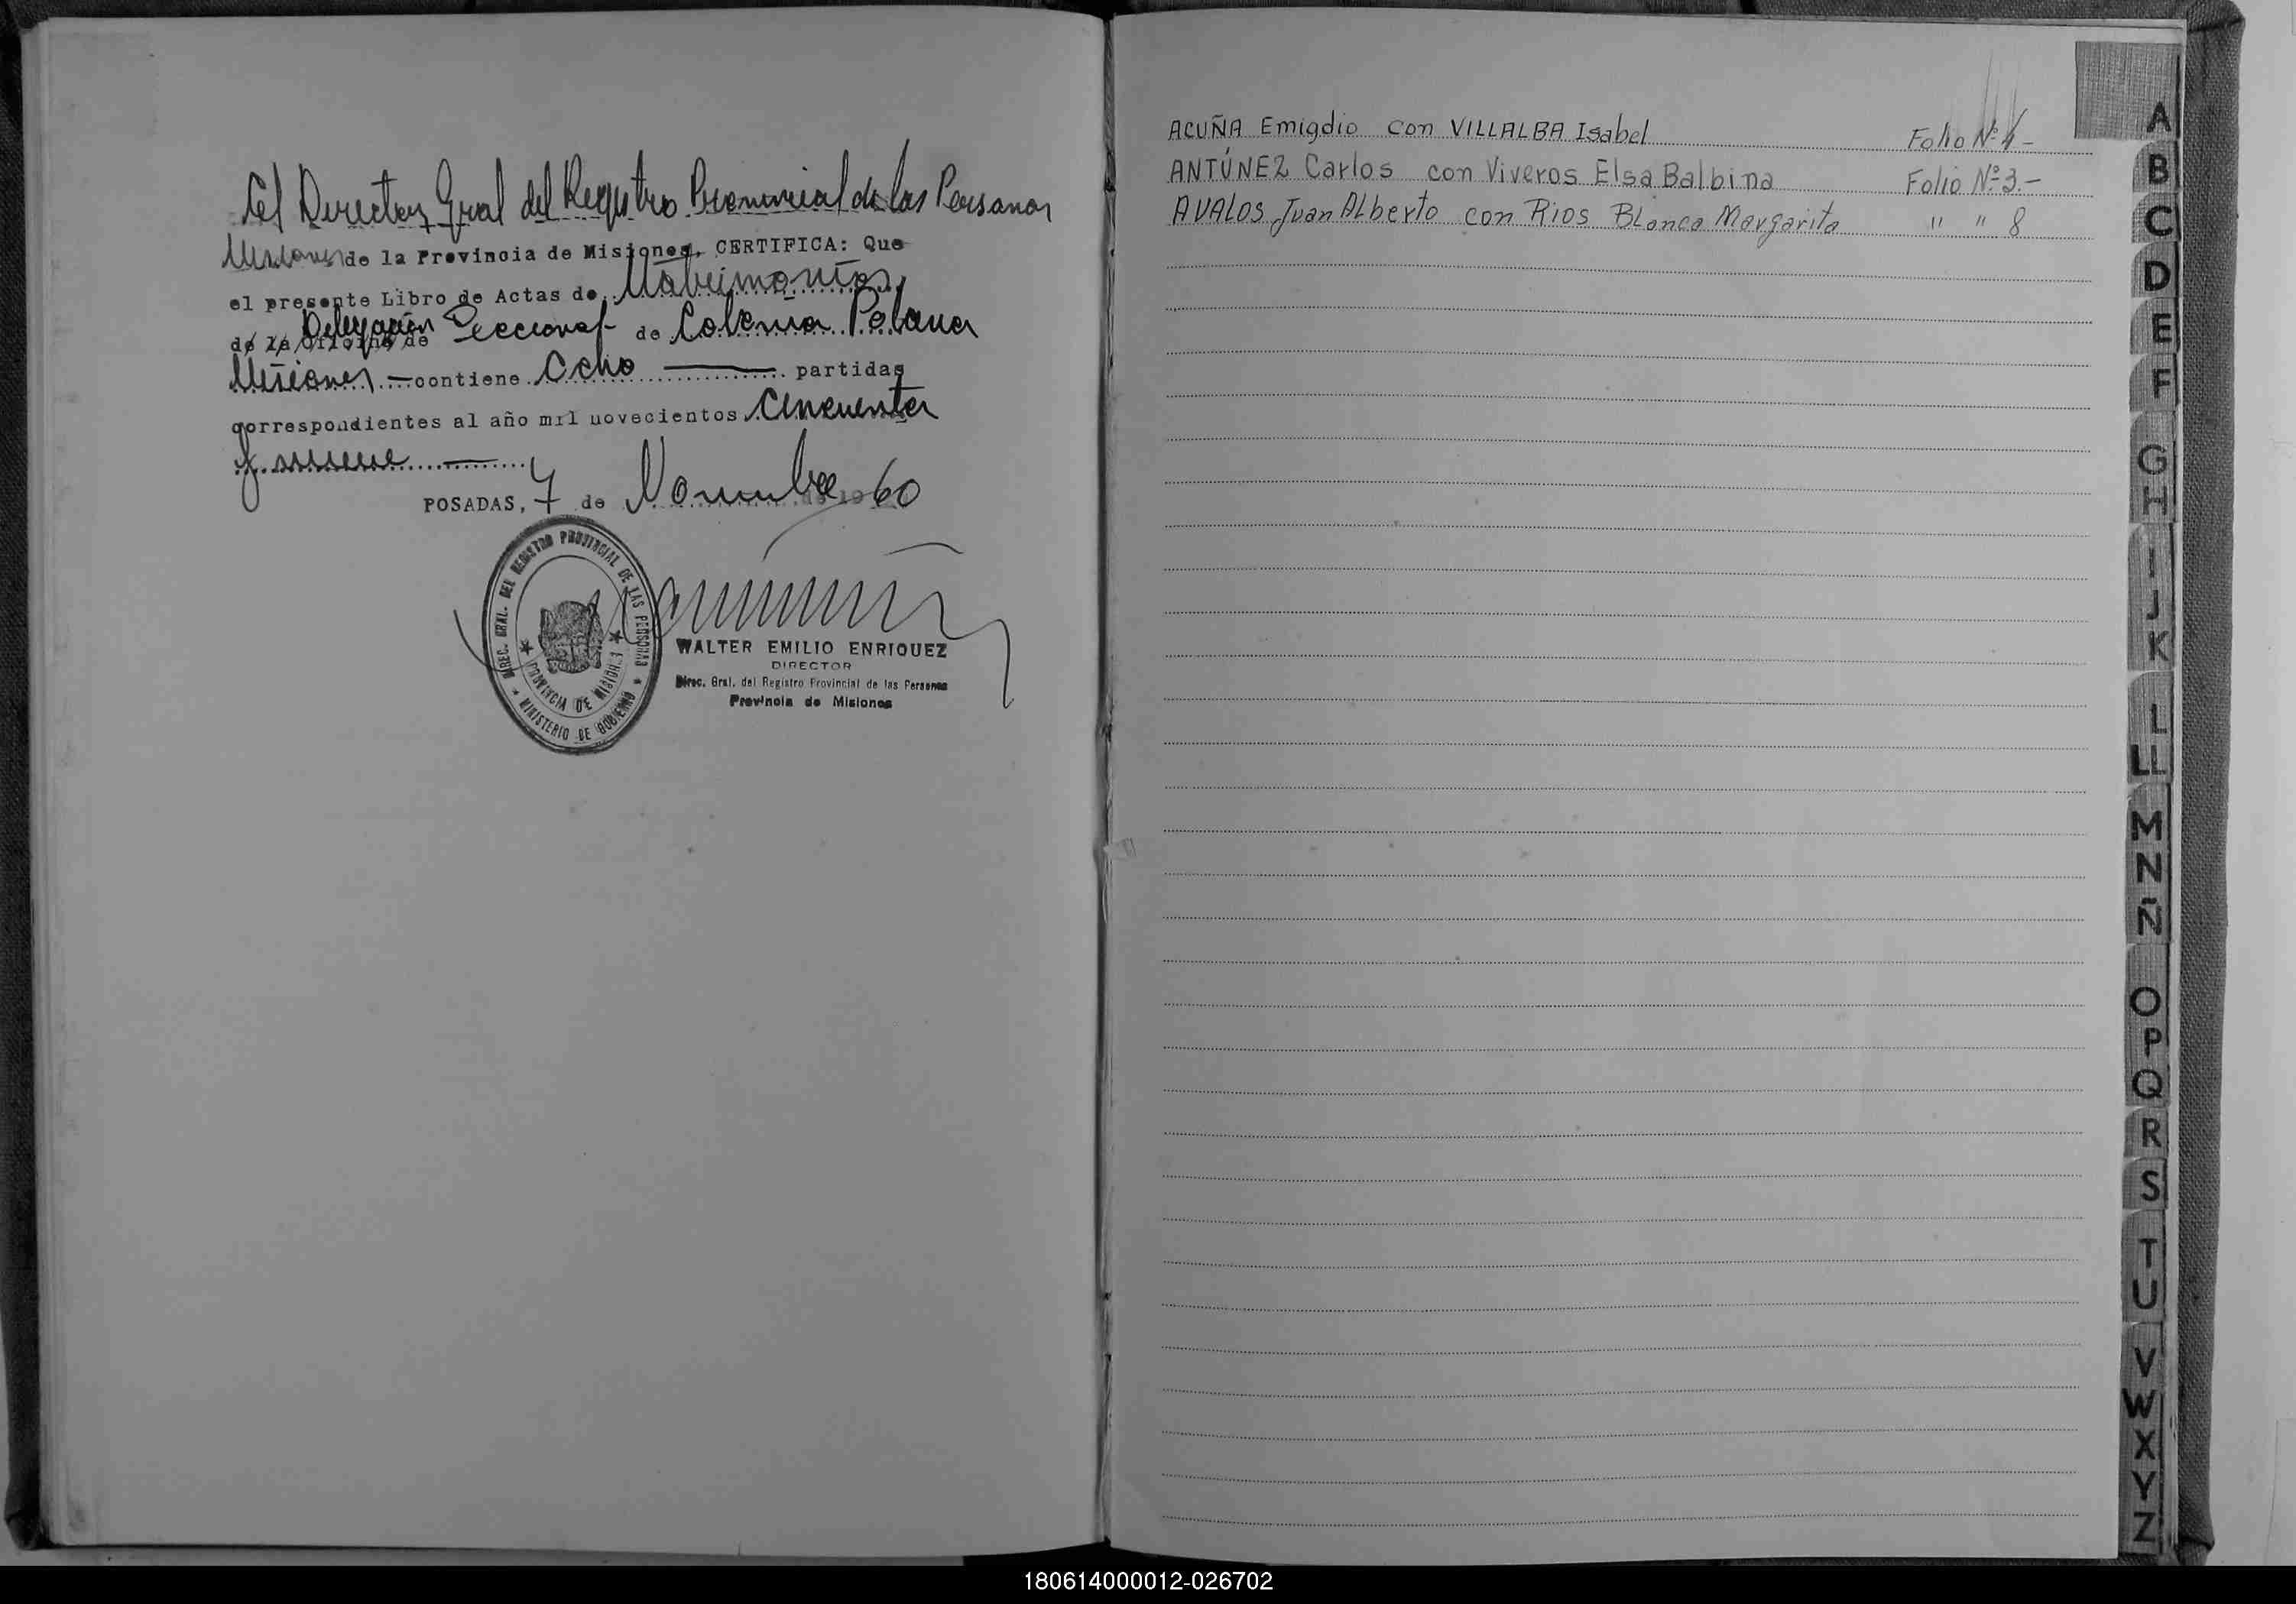 El Director Gral del Registro Provincial de las Personas
Misiones de la Provincia de Misiones, CERTIFICA: Que
el presente Libro de Actas de Matrimonios
Delegación
de la Oficina de Seccional de Colonia Polana
Misiones - contiene Ocho partidas
correspondientes al año mil novecientos Cincuenta
y nueve
POSADAS, 7 de Noviembre de 1960
DIREC. GRAL. DEL REGISTRO PROVINCIAL DE LAS PERSONAS
PROVINCIA DE MISIONES
MINISTERIO DE GOBIERNO
WALTER EMILIO ENRIQUEZ
DIRECTOR
Direc. Gral. del Registro Provincial de las Personas
Provincia de Misiones
ACUÑA Emigdio con VILLALBA Isabel Folio Nº 1-
ANTÚNEZ Carlos con Viveros Elsa Balbina Folio Nº 3.-
AVALOS Juan ALberto con Rios BLanca Margarita " " 8
A
B
C
D
E
F
G
H
I
J
K
L
LL
M
N
Ñ
O
P
Q
R
S
T
U
V
W
X
Y
Z
180614000012-026702